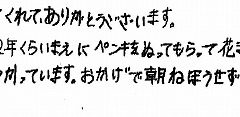 くれて、ありがとうございます。
2年くらいまえに ペンキをぬってもらって 花き
かっています。おかげで朝ねぼうせず